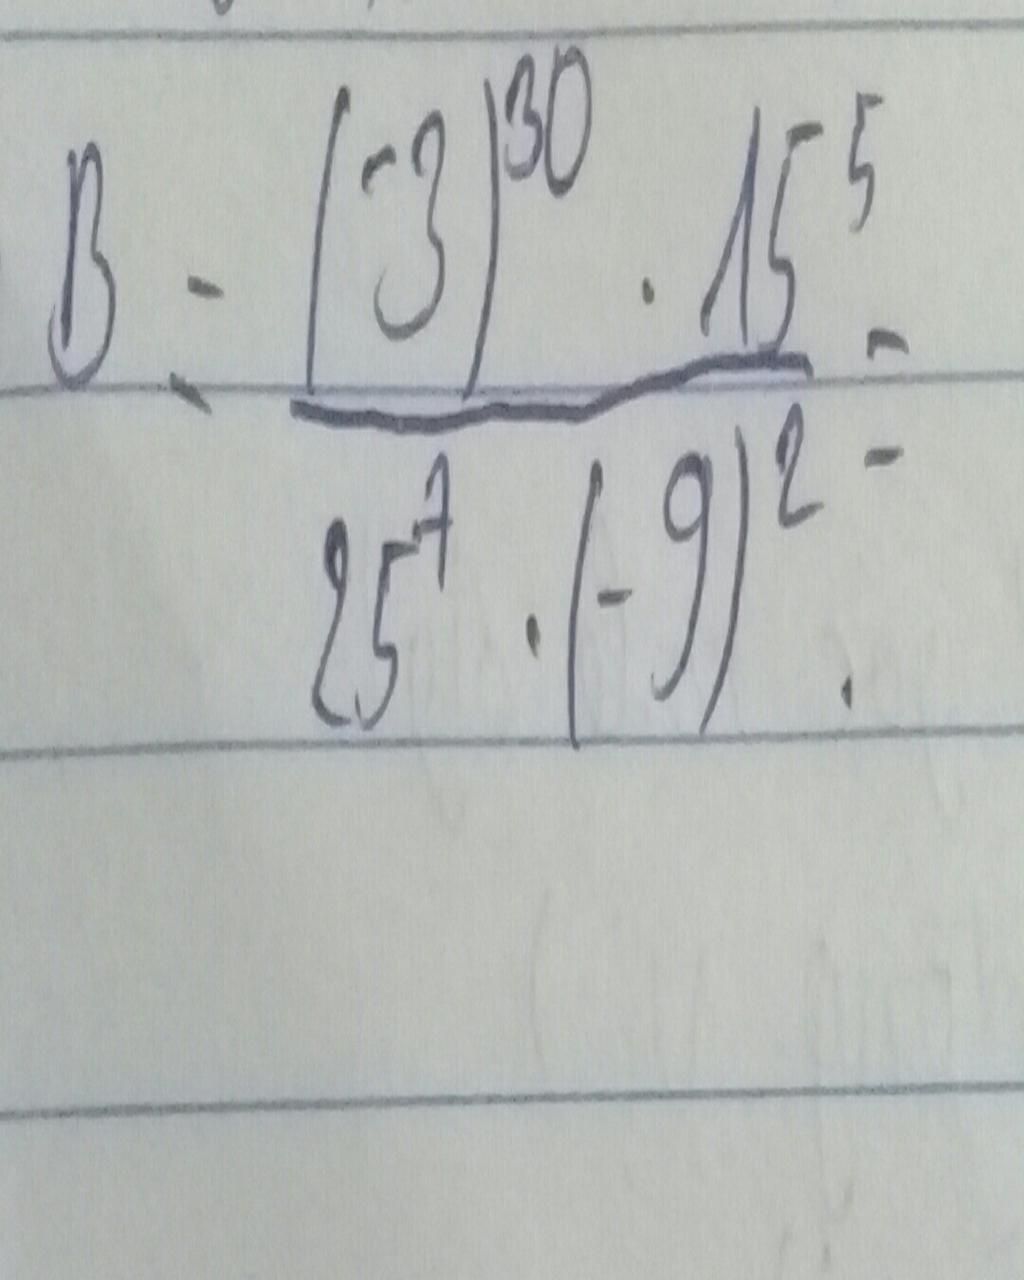 B = (-3)^30 · 15^5 =
25^7 · (-9)^2 .